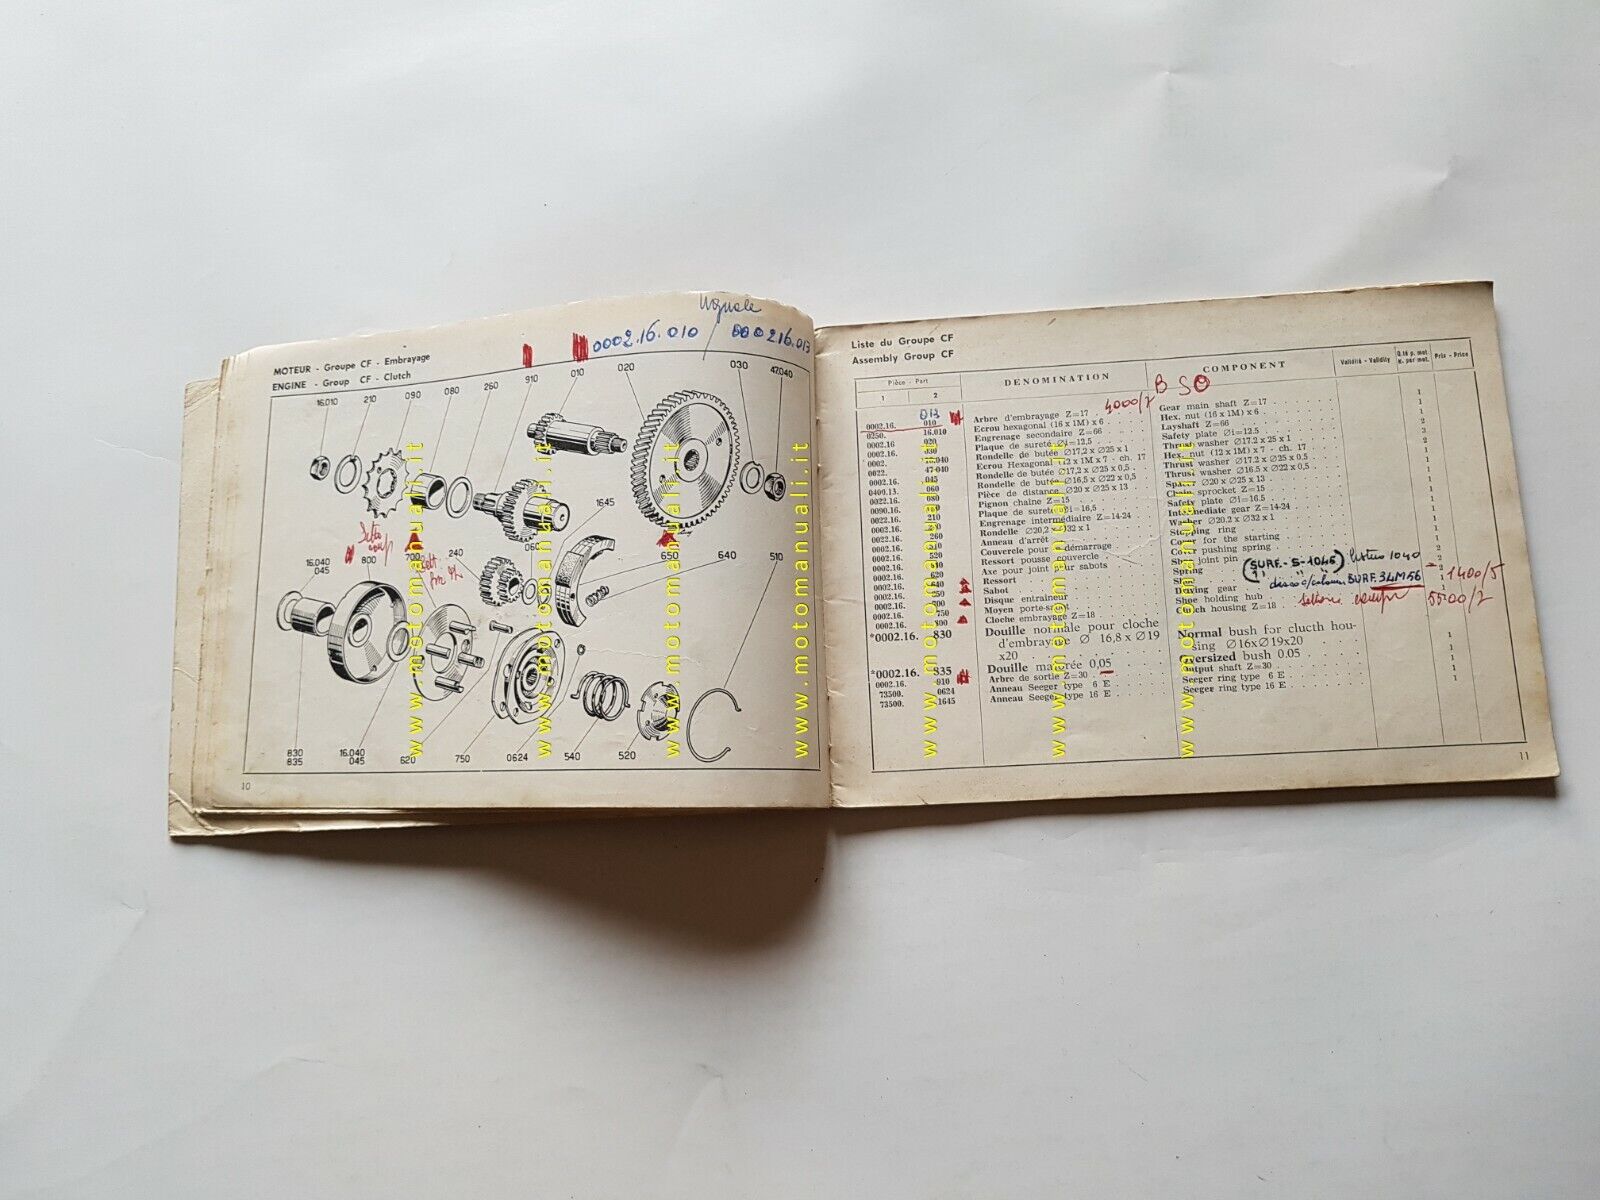 Uguale
0002.16.010 000216.013
MOTEUR - Groupe CF - Embrayage
ENGINE - Group CF - Clutch
16.010 210 090 080 260 910 010 020 030 47.040
1645
16.040
045 800 700 240 060 650 640 510
830
835 16.040
045 620 750 0624 540 520
10
www.motomanuali.it www.motomanuali.it www.motomanuali.it www.motomanuali.it
Liste du Groupe CF
Assembly Group CF
Pièce - Part DENOMINATION COMPONENT Validité - Validity Q.té p. mot. Prix - Price
1 2
4000/7 B SO
013
0002.16. 010 Arbre d'embrayage Z=17 Gear main shaft Z=17 1
0250. 16.010 Ecrou hexagonal (16 x 1M) x 6 Hex. nut (16 x 1M) x 6
0002.16 020 Engrenage secondaire Z=66 Layshaft Z=66
0002.16. 030 Plaque de sureté Ø i=12.5 Safety plate Ø i=12.5
0002. 16.040 Rondelle de butée Ø17,2 x Ø25 x 1 Thrust washer Ø17.2 x 25 x 1
0022. 47.040 Ecrou Hexagonal (12 x 1M x 7 - ch. 17 Hex. nut (12 x 1M) x 7 - ch. 17
0002.16. 045 Rondelle de butée Ø17,2 x Ø25 x 0,5 Thrust washer Ø17.2 x Ø25 x 0,5
0400.13. 060 Rondelle de butée Ø16,5 x Ø22 x 0,5 Thrust washer Ø16.5 x Ø22 x 0,5
0022.16. 080 Pièce de distance Ø20 x Ø25 x 13 Spacer Ø20 x Ø25 x 13
0090.16. Pignon chaîne Z=15 Chain sprocket Z=15
0022.16. 210 Plaque de sureté Ø i=16,5 Safety plate Ø i=16.5
0002.16. 240 Engrenage intermédiaire Z=14-24 Intermediate gear Z=14-24
0002.16. 260 Rondelle Ø20,2 x Ø32 x 1 Washer Ø20,2 x Ø32 x 1
0022.16. 510 Anneau d'arrêt Stopping ring
0002.16. 520 Couvercle pour démarrage Cover for the starting
0002.16. 540 Ressort pousse couvercle Cover pushing spring
0002.16. 620 Axe pour joint pour sabots Shoe joint pin
0002.16. 640 Ressort Spring
0002.16. Sabot Shoe
0002.16. Disque entraineur Driving gear
0002.16. 750 Moyen porte-sabot Shoe holding hub
0002.16. 800 Cloche embrayage Z=18 Clutch housing Z=18
(SURF.-S-1045)
SURF.34M56
1400/5
5500/2
*0002.16. 830 Douille normale pour cloche Normal bush for clucth hou-
d'embrayage Ø 16,8 x Ø19 sing Ø16xØ19x20 1
x20
*0002.16. 835 Douille majorée 0,05 Oversized bush 0.05 1
0002.16. 910 Arbre de sortie Z=30 Output shaft Z=30 1
73500. 0624 Anneau Seeger type 6 E Seeger ring type 6 E 1
73500. 1645 Anneau Seeger type 16 E Seeger ring type 16 E 1
www.motomanuali.it www.motomanuali.it www.motomanuali.it
11